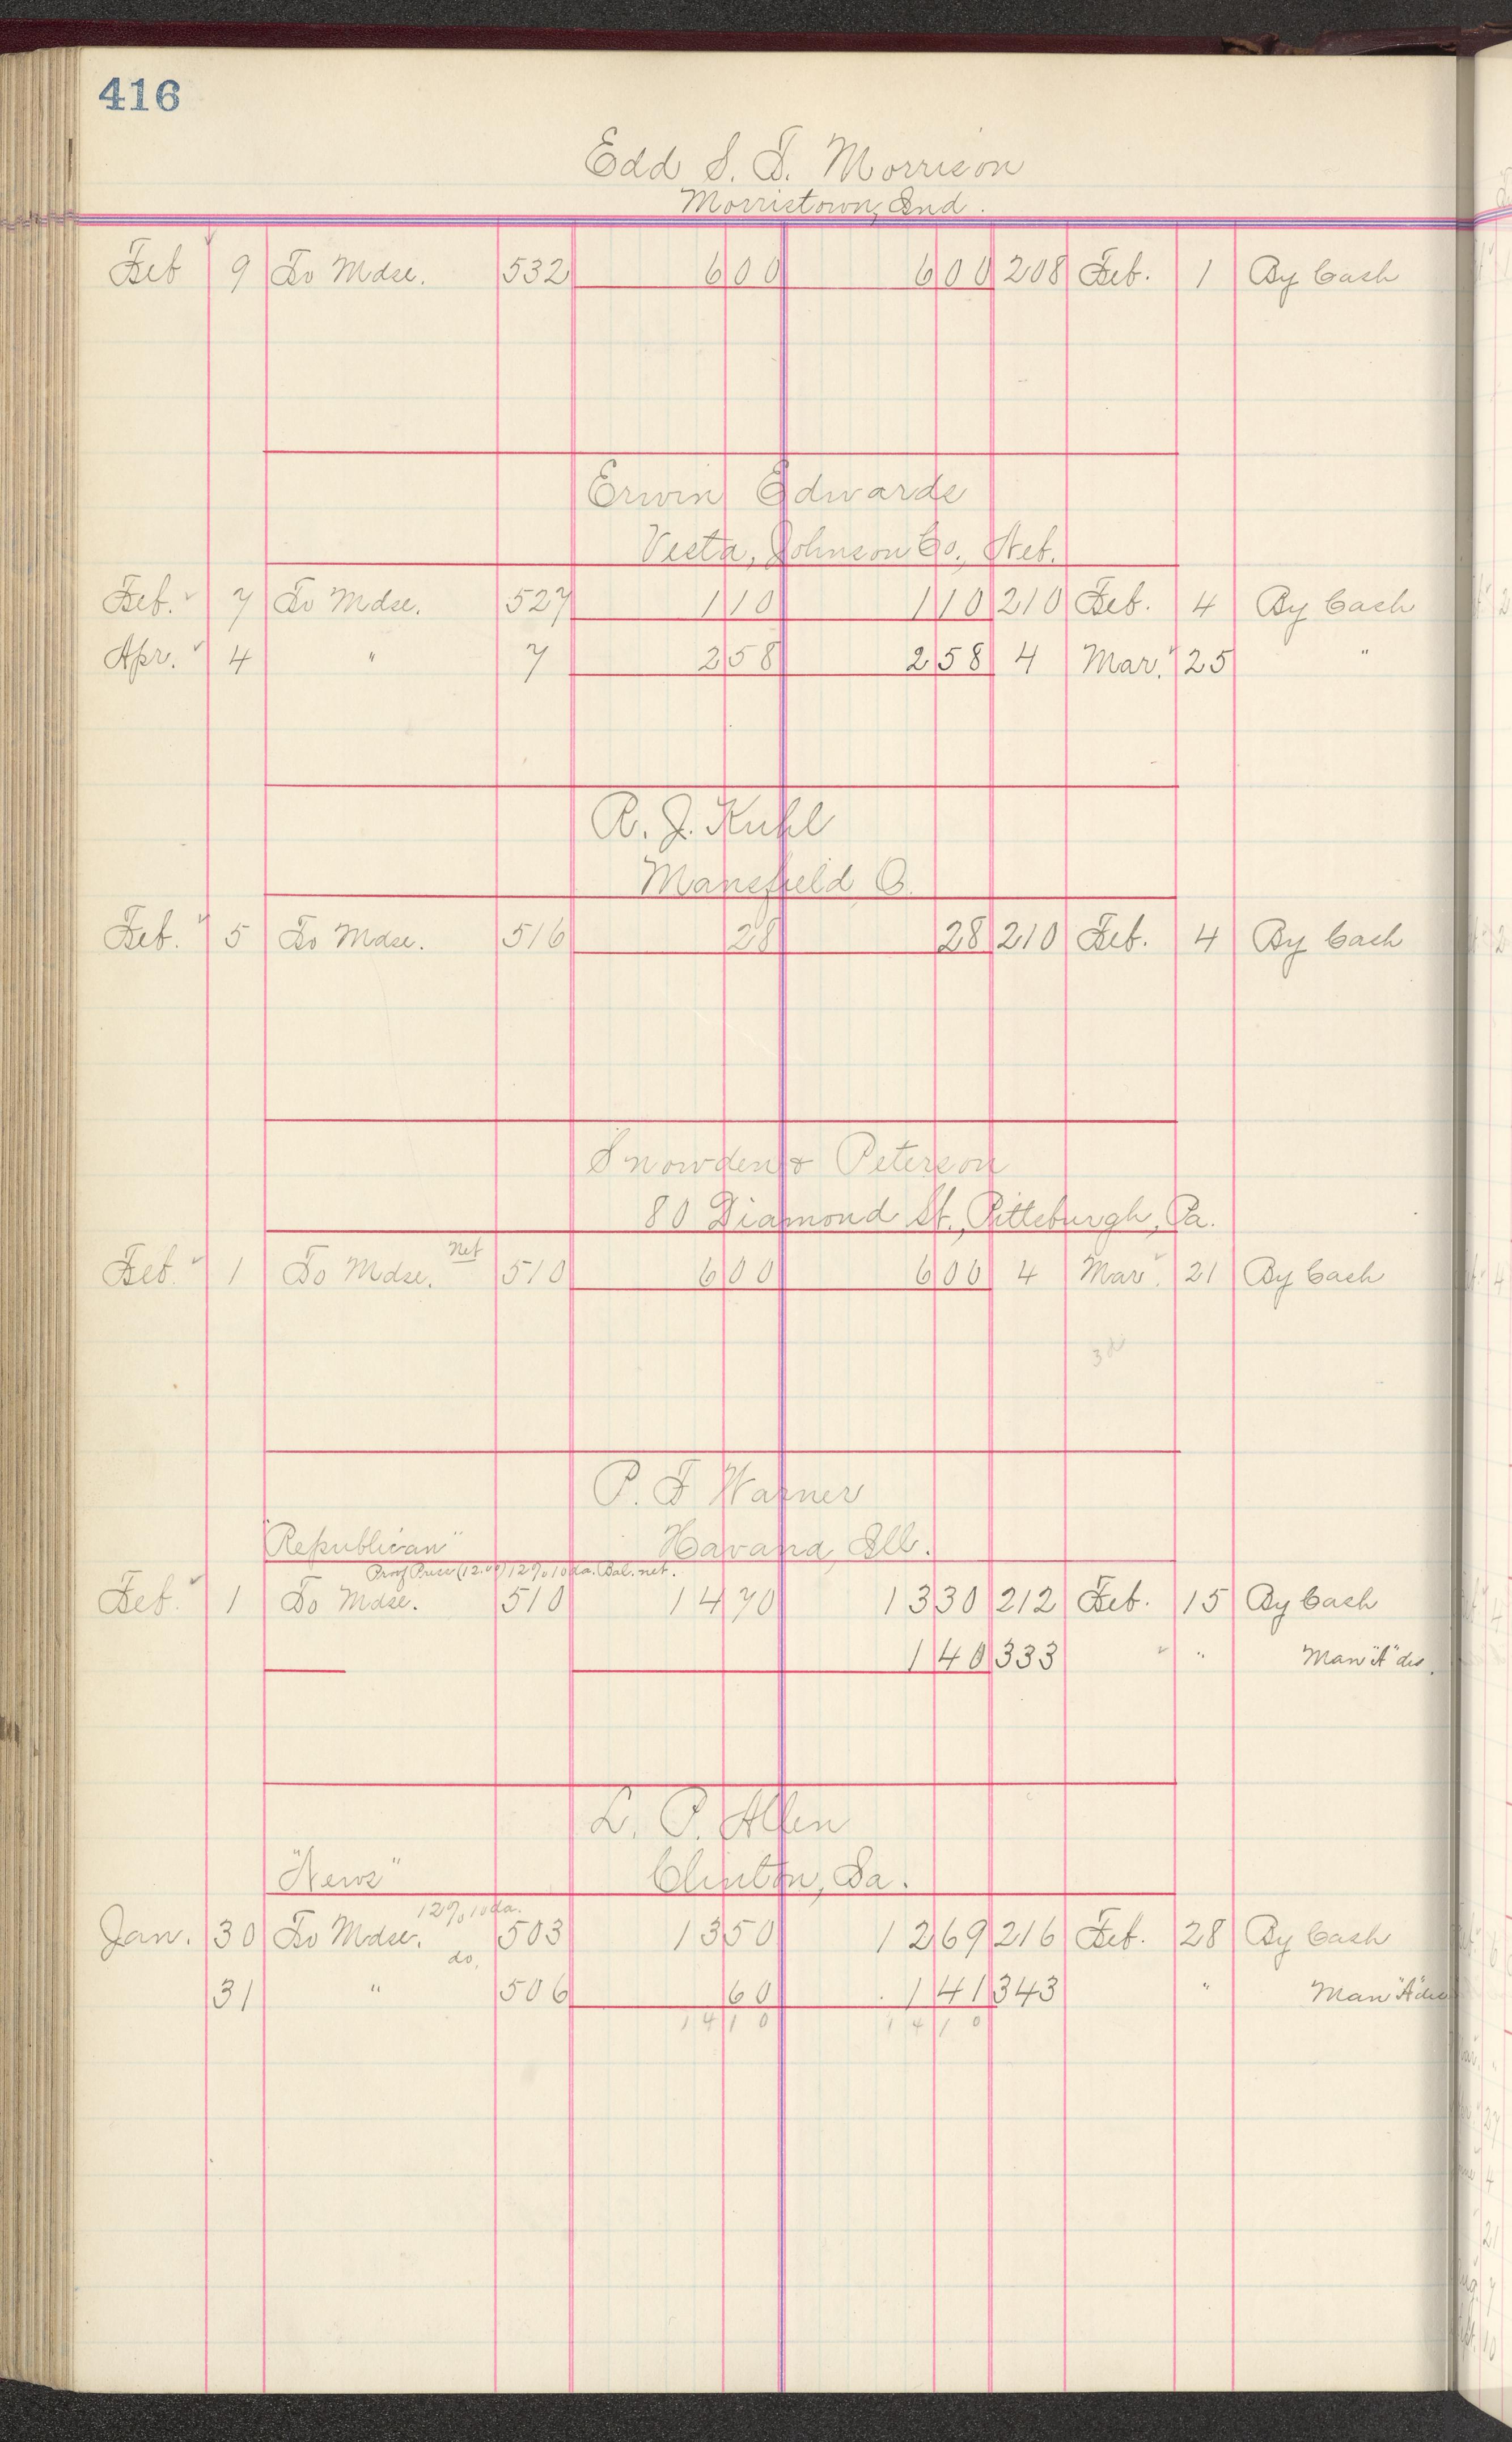 416
Edd S. T. Morrison
Morristown, Ind.
Feb 9 To Mdse. 532 6 00 6 00 208 Feb. 1 By Cash
Erwin Edwards
Vesta, Johnson Co., Neb.
Feb. 7 To Mdse. 527 1 10 1 10 210 Feb. 4 By Cash
Apr. 4 " 7 2 58 2 58 4 Mar. 25 "
R. J. Kuhl
Mansfield O.
Feb. 5 To Mdse. 516 28 28 210 Feb. 4 By Cash
Snowden & Peterson
80 Diamond St., Pittsburgh, Pa.
Feb. 1 To Mdse. Net 510 6 00 6 00 4 Mar. 21 By Cash
P. F Warner
"Republican" Havana, Ill.
12% 10 da. Bal. net.
Feb. 1 To Mdse. 510 14 70 13 30 212 Feb. 15 By Cash
1 40 333 " " Man "A" dis.
L. P. Allen
"News" Clinton, Ia.
12% 10 da.
Jan. 30 To Mdse. 503 13 50 12 69 216 Feb. 28 By Cash
do.
31 " 506 60 1 41 343 " Man "A" dis
14 10 14 10